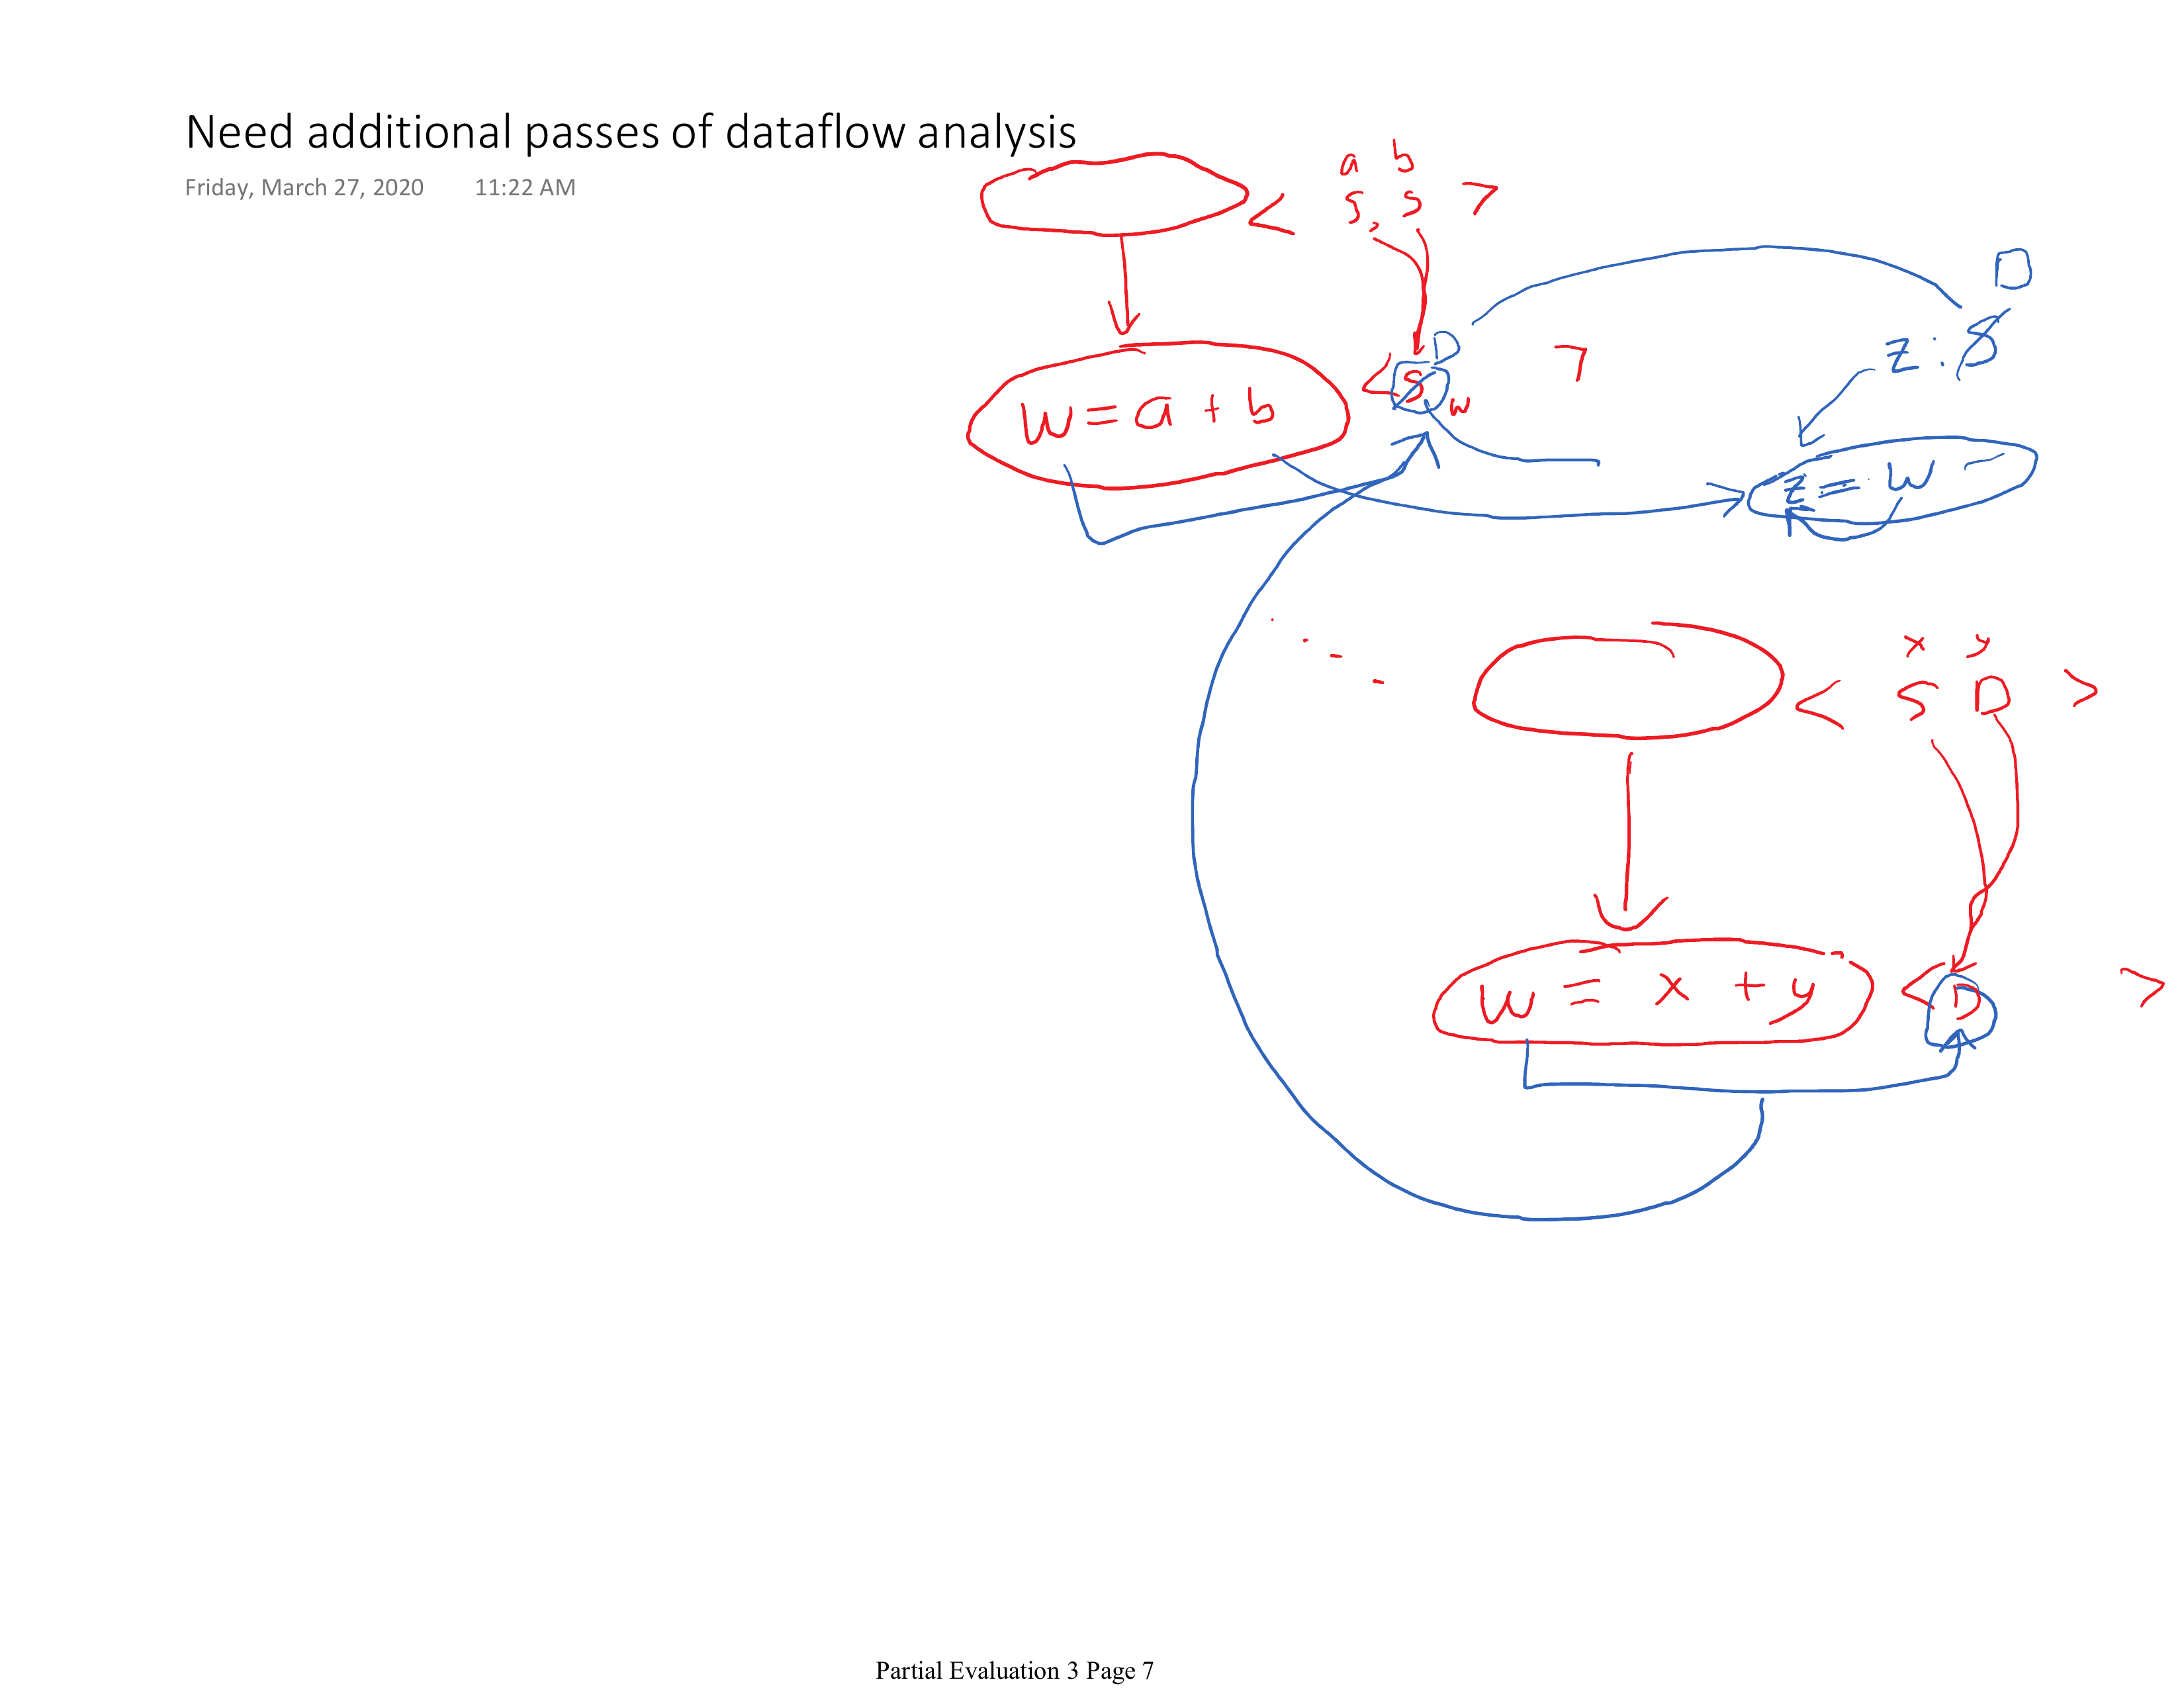 Need additional passes of dataflow analysis
Friday, March 27, 2020 11:22 AM
a b
< S, S >
D
z : S
D
< S w >
w = a + b
z = w
x y
< S D >
w = x + y
< D >
Partial Evaluation 3 Page 7